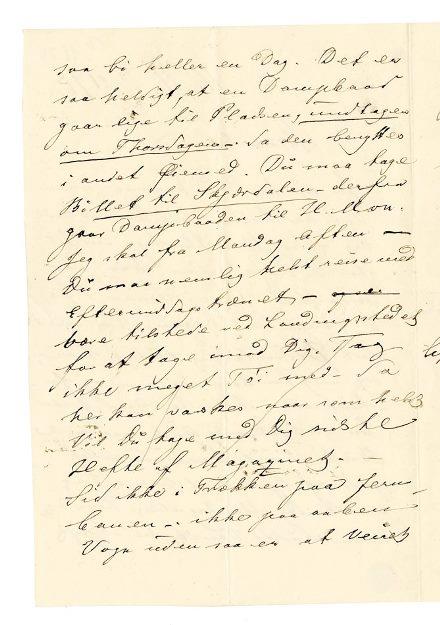 saa bi heller en Dag. Det er
saa heldigt, at en Dampbaad
gaar lige til Pladsen, undtagen
om Thorsdagen – da den benyttes
i andet Øiemed. Du maa tage
Billet til Skjærdalen – derfra
gaar Dampbaaden til H.Mon.
Jeg skal fra Mandag Aften –
Du maa nemlig helst reise med
Eftermiddagstrænet –
være tilstede ved Landingsstedet
for at tage imod Dig. Tag
ikke meget Töi med – Da
her kan vaskes naar som helst
Vil Du tage med Dig sidste
Hefte af Magazinet. –
Sid ikke i Trækken paa Jern-
banen – ikke paa aaben
Vogn uden saa er at Veiret